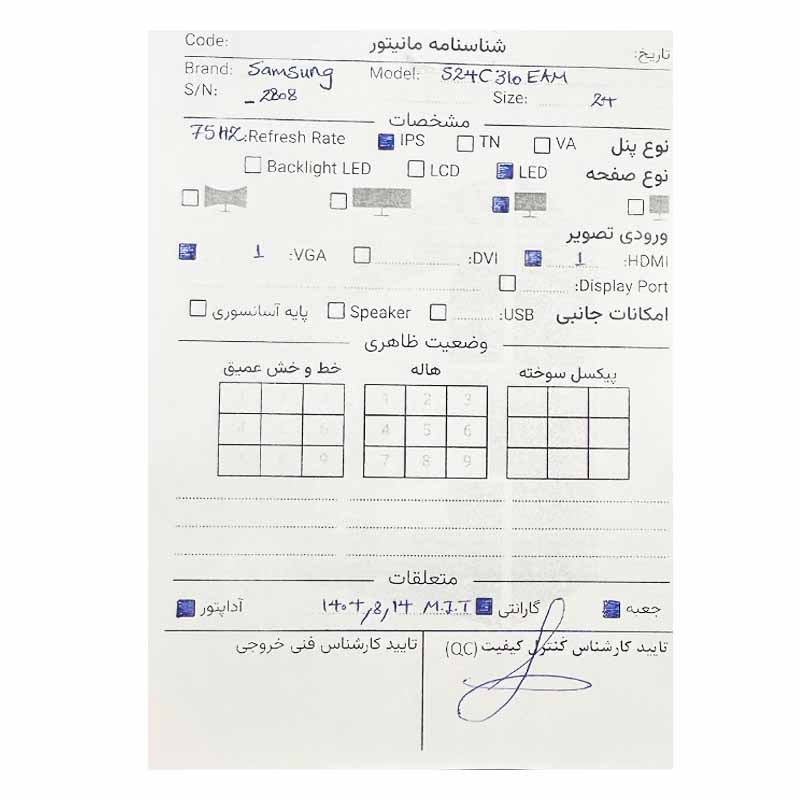 شناسنامه مانیتور Code:
تاریخ:
Brand: Samsung Model: S24C310EAM
S/N: _ 2808 Size: 24
مشخصات
نوع پنل VA TN IPS Refresh Rate: 75HZ
نوع صفحه LED LCD Backlight LED
ورودی تصویر
HDMI: 1 DVI: VGA: 1
Display Port:
امکانات جانبی USB: Speaker پایه آسانسوری
وضعیت ظاهری
پیکسل سوخته هاله خط و خش عمیق
1 2 3
4 5 6
7 8 9
متعلقات
جعبه گارانتی M.I.T آداپتور
تایید کارشناس کنترل کیفیت (QC) تایید کارشناس فنی خروجی